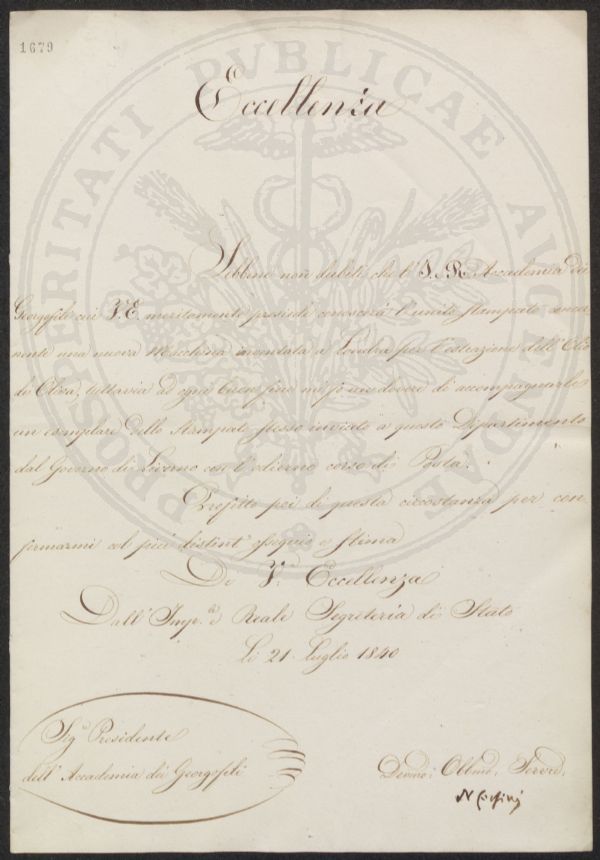 1679
PROSPERITATI PVBLICAE AVGENDAE
Eccellenza
Sebbene non dubiti che l'I. R. Accademia dei
Georgofili cui V. E. meritamente presiede conoscerà l'unito Stampato concer-
nente una nuova Macchina inventata a Londra per l'estrazione dell'Olio
di Oliva, tuttavia ad ogni buon fine mi fo un dovere di accompagnarle
un esemplare dello Stampato stesso inviato a questo Dipartimento
dal Governo di Livorno con l'odierno corso di Posta.
Profitto poi di questa circostanza per con
fermarmi col più distint' ossequio e stima
Di V. Eccellenza
Dall' Imp.e e Reale Segreteria di Stato
Li 21 Luglio 1840
Sig. Presidente
dell' Accademia dei Georgofili
Devmo: Obbmo. Servre.
N Corsini